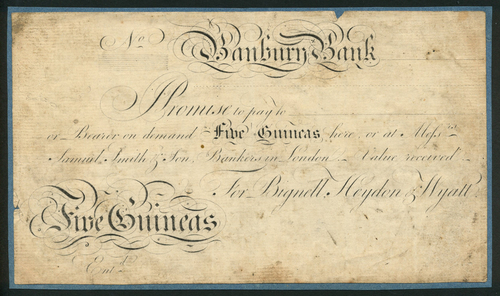 No. Banbury Bank
I Promise to pay to
or Bearer on demand Five Guineas here or at Messrs.
Samuel Smith & Son, Bankers in London Value received
For Bignell, Heydon & Wyatt
Five Guineas
Entd.